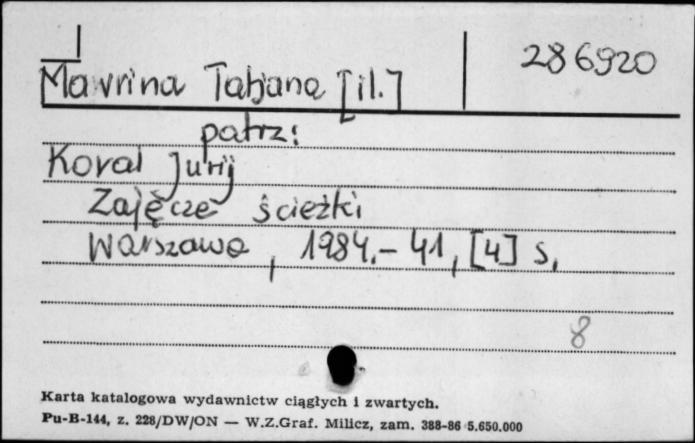 286920
Mavrina Tatjana [il.]
patrz:
Koval Jurij
Zajęcze ścieżki
Warszawa, 1984.- 41, [4] s.
8
Karta katalogowa wydawnictw ciągłych i zwartych.
Pu-B-144, z. 228/DW/ON — W.Z.Graf. Milicz, zam. 388-86 5.650.000